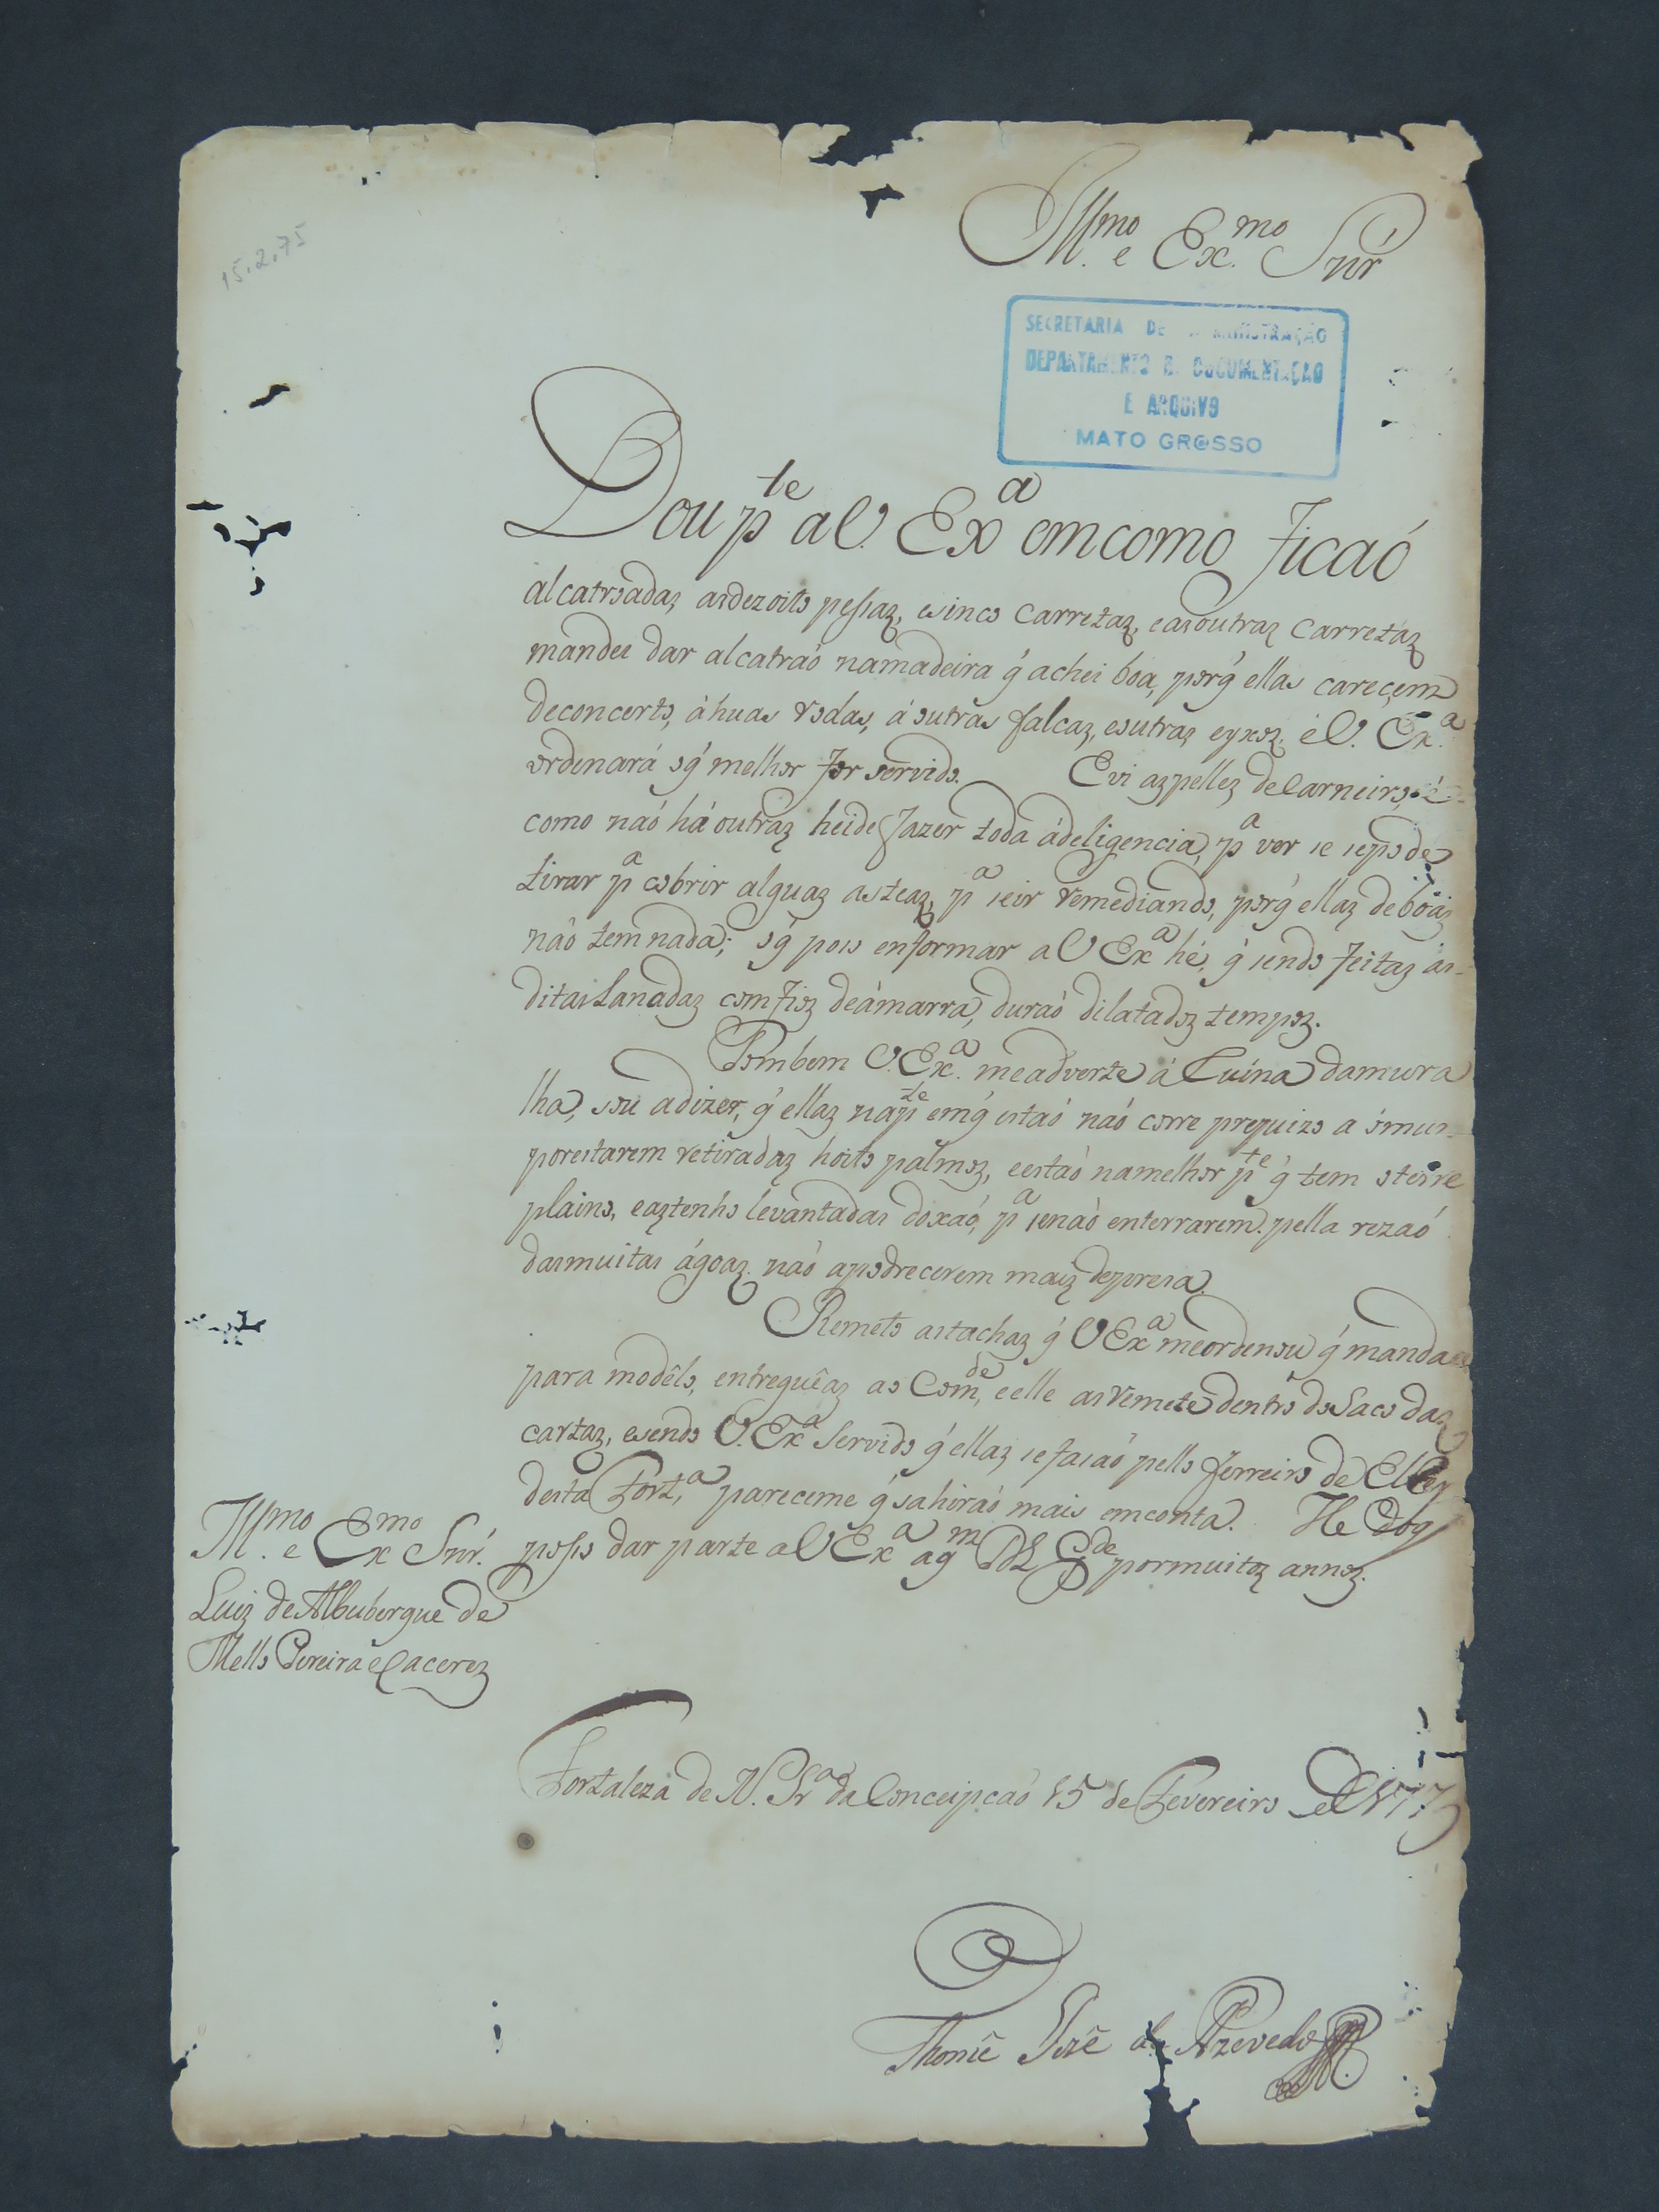 Ill.mo e Ex.mo Snr
15.2.75
SECRETARIA DE ADMINISTRAÇÃO
DEPARTAMENTO DE DOCUMENTAÇÃO
E ARQUIVO
MATO GROSSO
Dou p.te a V. Ex.a em como ficaó
alcatroadaz as dezoito pessaz, e sinco carretaz, e as outraz carretaz
mandei dar alcatraó na madeira q̃ achei boa, porq̃ ellas careçem
de concerto, á huas rodas, á outras falcaz, e outraz eyxoz, é V. Ex.a
ordenará oq̃ melhor for servido. E vi az pellez de Carneiro, é
como naó há outraz heide fazer toda á deligencia, p.a ver se se pode
tirar p.a cobrir alguaz asteaz, p.a se ir remediando, porq̃ ellaz de boaz
náo tem nada; oq̃ posso enformar a V Ex.a hé, q̃ sendo feitaz as
ditas Lanadaz com fioz de ámarra, duraó dilatadoz tempoz.
Tombem V. Ex.a me adverte á Ruina da mura
lha, sou a dizer, q̃ ellaz na p.te em q̃ estaó naó corre prejuizo a ó muro
por estarem retiradaz hoito palmoz, e estaó na melhor p.te q̃ tem o terre
plaino, e az tenho levantadas do xaó, p.a se naó enterrarem. pella rezaó
das muitas ágoaz. náo apodrecerem maiz depresa.
Remeto as tachaz q̃ V Ex.a me ordenou q̃ manda
para modêlo, entreguêaz ao Com.de, e elle as remete dentro do Saco daz
cartaz, e sendo V. Ex.a Servido q̃ ellaz se fasaó pello ferreiro de El Rey
desta Fort.a, pareceme q̃ sahiraó mais em conta. He o q̃
posso dar parte a V Ex.a a q.m D.s G.de por muitoz annoz.
Ill.mo e Ex.mo Snr.
Luiz de Albuberque de
Mello Pereira e Cacerez
Fortaleza de N. Sr.a da Conceipcaó 15 de Fevereiro de 1775
Thomé Jozé de Azevedo